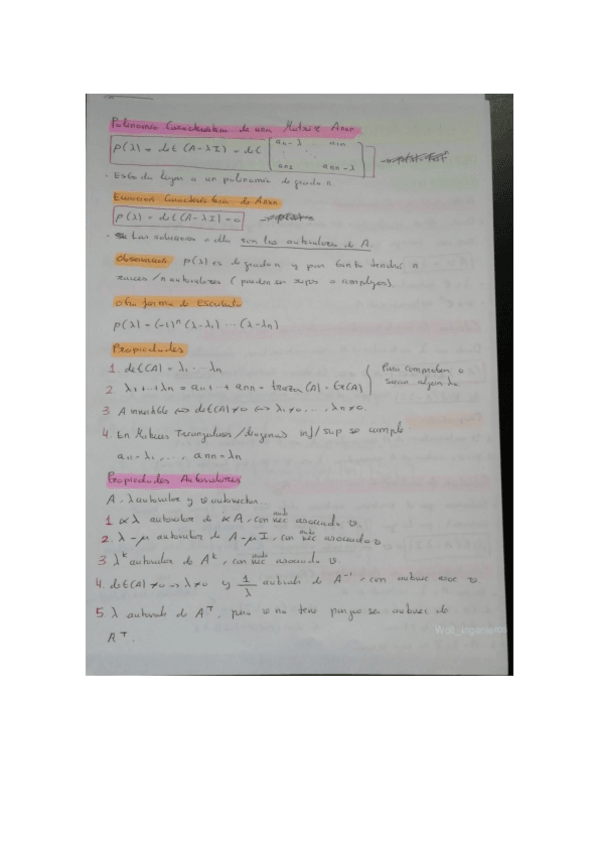 Polinomio Característico de una Matriz Anxn
p(λ) = det (A-λI) = det [ a₁₁-λ ... a₁n
⋱
an1 ann-λ ]
· Esto da lugar a un polinomio de grado n.
Ecuación Característica de Anxn
p(λ) = det (A-λI) = 0
· Las soluciones a ella son los autovalores de A.
Observación p(λ) es de grado n y por tanto tendrá n
raíces/n autovalores (pueden ser reps o complejos).
Otra forma de Escribirlo
p(λ) = (-1)ⁿ (λ-λ₁) ... (λ-λn)
Propiedades
1. det(A) = λ₁ ... λn
2 λ₁+...+λn = a₁₁ + ann = traza(A) = tr(A)
Para comprobar o
sacar algún λn
3 A invertible ⇔ det(A)≠0 ⇔ λ₁≠0 ..., λn≠0.
4. En Matrices Triangulares/diagonales inf/sup se cumple
a₁₁=λ₁, ..., ann=λn
Propiedades Autovalores
A - λ autovalor y v autovector.
1 αλ autovalor de αA, con autovec asociado v.
2. λ-μ autovalor de A-μI, con autovec asociado v
3 λᵏ autovalor de Aᵏ, con autovec asociado v.
4. det(A)≠0 → λ≠0 y 1/λ autovalr de A⁻¹, con autovec asoc v.
5. λ autovalr de Aᵀ, pero v no tiene porque ser autovec de
Aᵀ.
Wolf_ingeniería